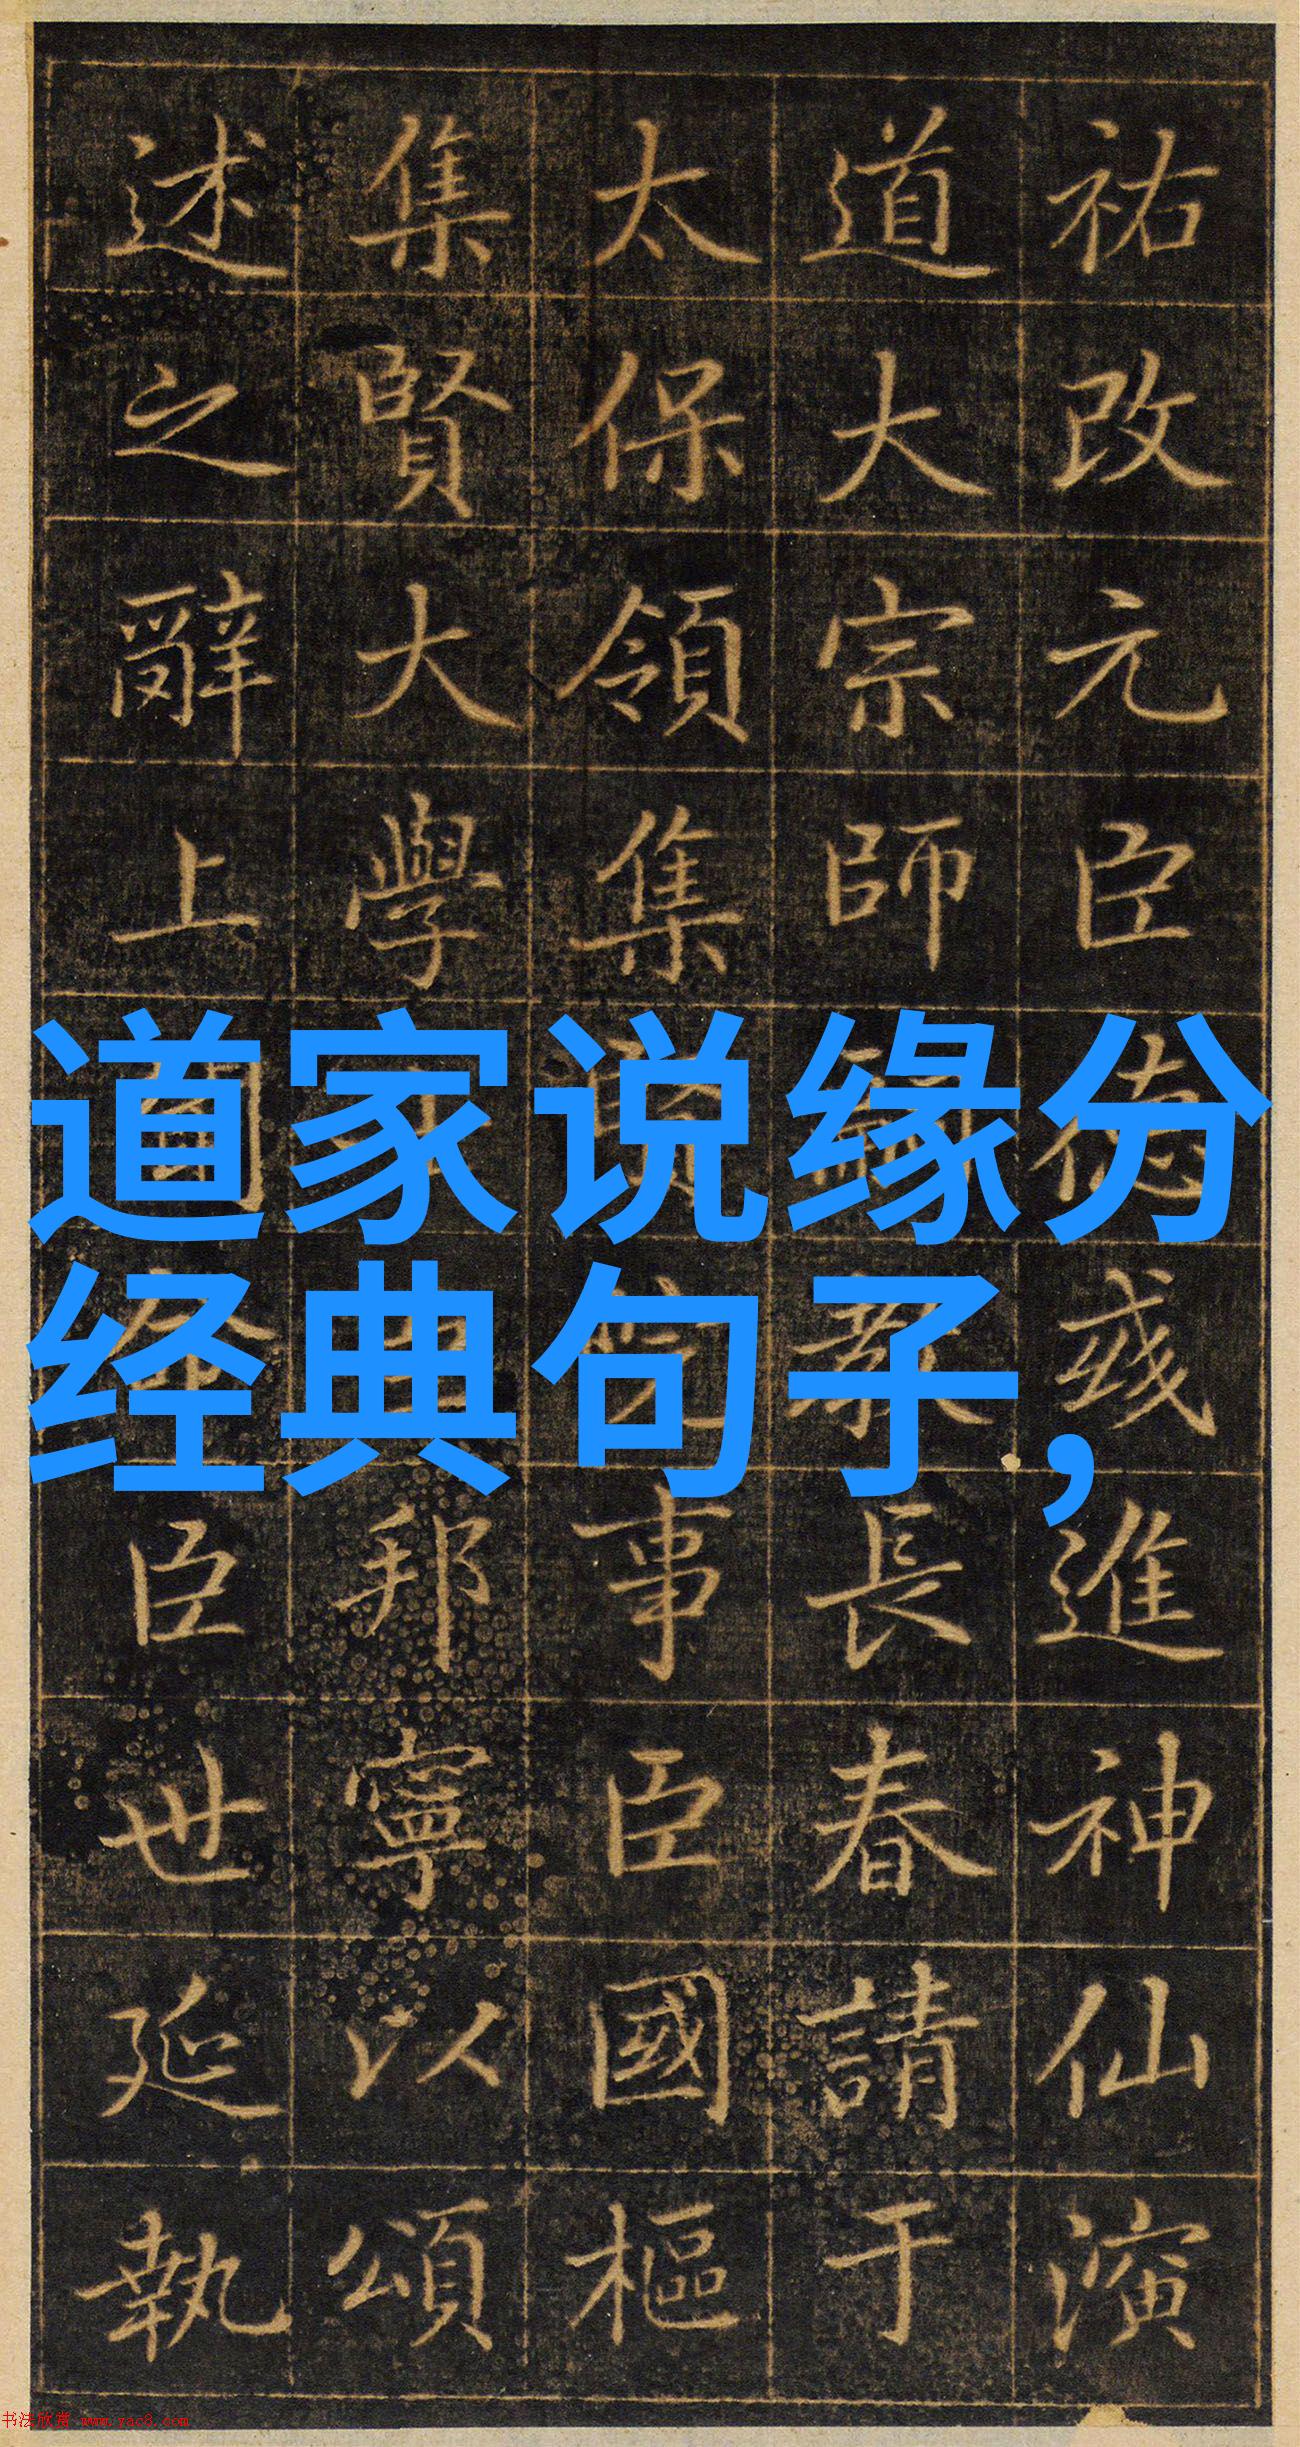 祐改元臣德彧進神仙演
道大宗師教長春請于
太保領集賢院事臣國樞
集賢大學士臣邦寧以頌
述之辭上聞命臣世延執
道家说缘分
经典句子，
书法欣赏 www.yac8.com